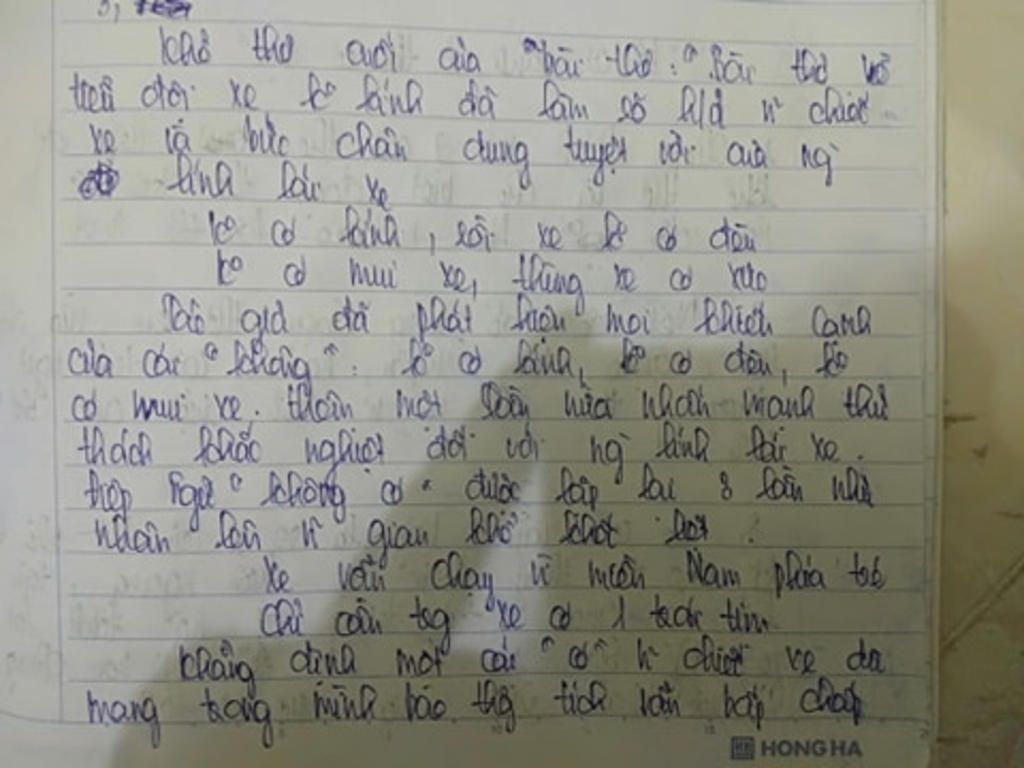 3,
khổ thơ cuối của "bài thơ: "Bài thơ về
tiểu đội xe ko kính đã làm rõ h/ả ~ chiếc
xe là bức chân dung tuyệt vời của ng`
lính lái xe
ko có kính, rồi xe ko có đèn
ko có mui xe, thùng xe có xước
Tác giả đã phát hiện mọi khiếm
của cái "không": ko có kính, ko có đèn, ko
có mui xe. thêm một lần nữa nhấn mạnh thử
thách khắc nghiệt đối với ng` lính lái xe.
điệp ngữ "không có" được lặp lại 3 lần như
nhân lên ~ gian khổ khốt
xe vẫn chạy vì miền Nam phía trc
chỉ cần trg xe có 1 trái tim
khẳng định một cái "có" ~ chiếc xe đã
mang trong mình bao thg tích vẫn bấp chấp
HONG HA